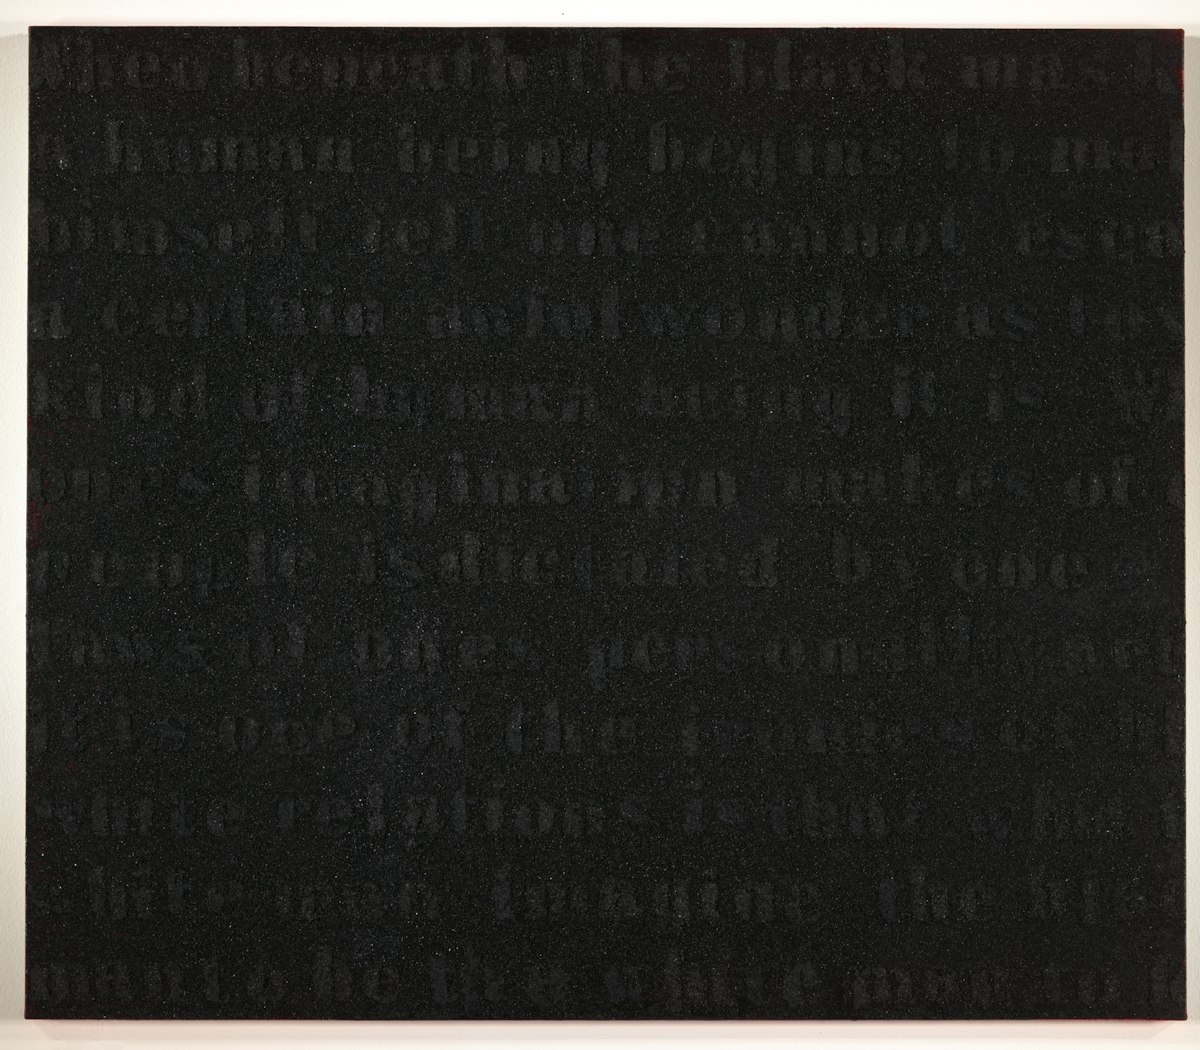 When beneath the black mask
a human being begins to mak
himself felt one cannot escap
a certain awful wonder as to w
kind of human being it is Wh
ones imagination makes of o
people is dictated by one
laws of ones personality and
it is one of the ironies of bl
white relations is that what t
white man imagine the blac
man to be the white man is